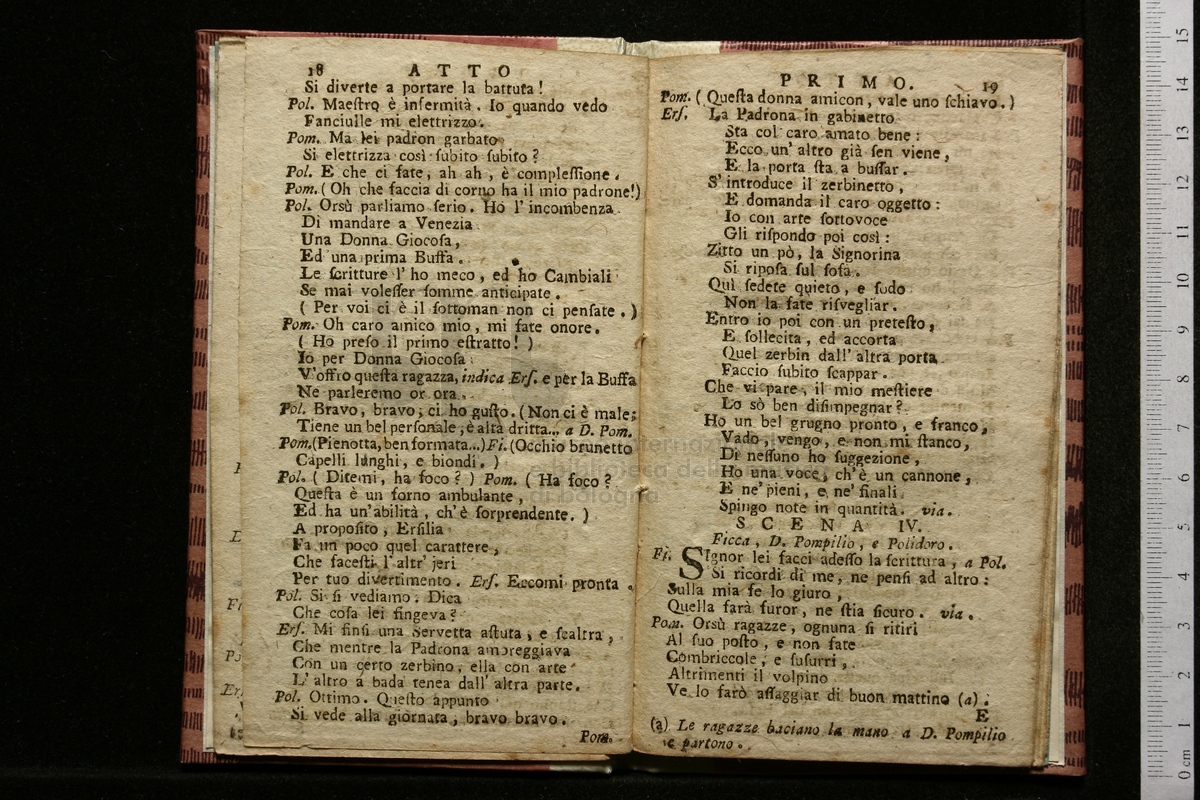 18 ATTO
Si diverte a portare la battuta!
Pol. Maeſtro è infermità. Io quando vedo
Fanciulle mi elettrizzo.
Pom. Ma lei padron garbato
Si elettrizza così ſubito ſubito?
Pol. E che ci fate, ah ah, è compleſſione.
Pom. (Oh che faccia di corno ha il mio padrone!)
Pol. Orsù parliamo ſerio. Ho l'incombenza
Di mandare a Venezia
Una Donna Giocoſa,
Ed una prima Buffa.
Le ſcritture l'ho meco, ed ho Cambiali
Se mai voleſſer ſomme anticipate.
(Per voi ci è il ſottoman non ci penſate.)
Pom. Oh caro amico mio, mi fate onore.
(Ho preſo il primo eſtratto!)
Io per Donna Giocoſa
V'offro queſta ragazza, indica Erſ. e per la Buffa
Ne parleremo or ora.
Pol. Bravo, bravo; ci ho guſto. (Non ci è male;
Tiene un bel perſonale, è alta dritta... a D. Pom.
Pom. (Pienotta, ben formata...) Fi. (Occhio brunetto
Capelli lunghi, e biondi.)
Pol. (Ditemi, ha foco?) Pom. (Ha foco?
Queſta è un forno ambulante,
Ed ha un'abilità, ch'è ſorprendente.)
A propoſito, Erſilia
Fa un poco quel carattere,
Che faceſti l'altr'jeri
Per tuo divertimento. Erſ. Eccomi pronta.
Pol. Si ſi vediamo. Dica
Che coſa lei fingeva?
Erſ. Mi finſi una Servetta aſtuta, e ſcaltra,
Che mentre la Padrona amoreggiava
Con un certo zerbino, ella con arte
L'altro a bada tenea dall'altra parte.
Pol. Ottimo. Queſto appunto
Si vede alla giornata, bravo bravo.
Pom.
PRIMO. 19
Pom. (Queſta donna amicon, vale uno ſchiavo.)
Erſ. La Padrona in gabinetto
Sta col caro amato bene:
Ecco un'altro già ſen viene,
E la porta ſta a buſſar.
S'introduce il zerbinetto,
E domanda il caro oggetto:
Io con arte ſottovoce
Gli riſpondo poi così:
Zitto un pò, la Signorina
Si ripoſa ſul ſofà.
Quì ſedete quieto, e ſodo
Non la fate riſvegliar.
Entro io poi con un preteſto,
E ſollecita, ed accorta
Quel zerbin dall'altra porta
Faccio ſubito ſcappar.
Che vi pare, il mio meſtiere
Lo sò ben diſimpegnar?
Ho un bel grugno pronto, e franco,
Vado, vengo, e non mi ſtanco,
Di neſſuno ho ſuggezione,
Ho una voce, ch'è un cannone,
E ne' pieni, e ne' finali
Spingo note in quantità. via.
SCENA IV.
Ficca, D. Pompilio, e Polidoro.
Fi. SIgnor lei facci adeſſo la ſcrittura, a Pol.
Si ricordi di me, ne penſi ad altro:
Sulla mia fe lo giuro,
Quella farà furor, ne ſtia ſicuro. via.
Pom. Orsù ragazze, ognuna ſi ritiri
Al ſuo poſto, e non fate
Combriccole, e ſuſurri,
Altrimenti il volpino
Ve lo farò aſſaggiar di buon mattino (a).
E
(a) Le ragazze baciano la mano a D. Pompilio
e partono.